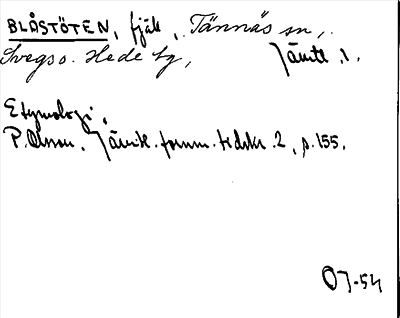 BLÅSTÖTEN, fjäll, Tännäs sn,
Svegs o. Hede tg, Jämtl. l.
Etymologi.
P. Olsson. Jämtl. fornm. tidskr. 2, s. 155.
OJ-54